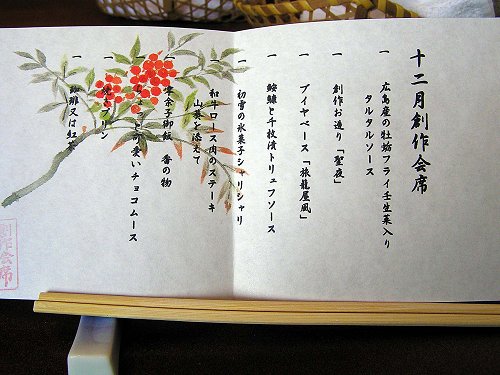 十二月創作会席
一 広島産の牡蛎フライ壬生菜入り
タルタルソース
一 創作お造り「聖夜」
一 ブイヤベース「旅龍屋風」
一 鮟鱇と千枚漬トリュフソース
一 初雪の氷菓子シャリシャリ
一 和牛ロース肉のステーキ
山葵を添えて
一 御飯 香の物
一 可愛いチョコムース
一 プリン
一 珈琲又は紅茶
創作会席